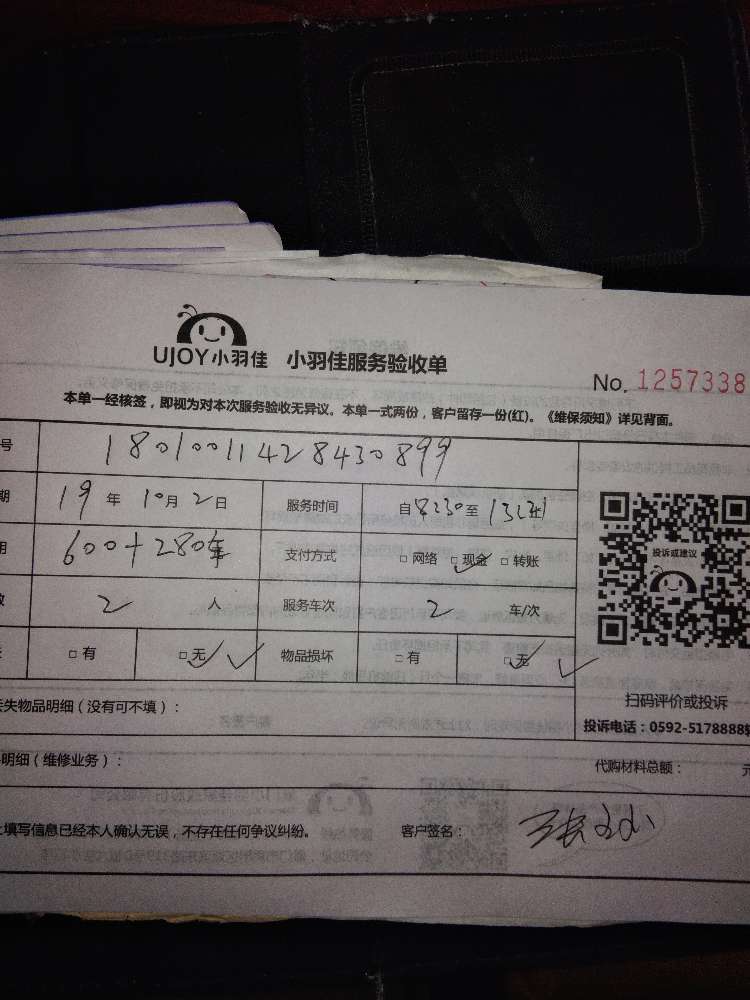 UJOY小羽佳 小羽佳服务验收单
No. 1257338
本单一经核签，即视为对本次服务验收无异议。本单一式两份，客户留存一份(红)。《维保须知》详见背面。
号 18010011428430899
期 19 年 10月 2日 服务时间 自8:30至
用 600+280 支付方式 □网络 □现金 □转账
数 2 人 服务车次 2 车/次
□有 □无 物品损坏 □有 □无
投诉或建议
扫码评价或投诉
投诉电话：0592-5178888
失物品明细（没有可不填）：
明细（维修业务）： 代购材料总额： 元
填写信息已经本人确认无误，不存在任何争议纠纷。 客户签名：